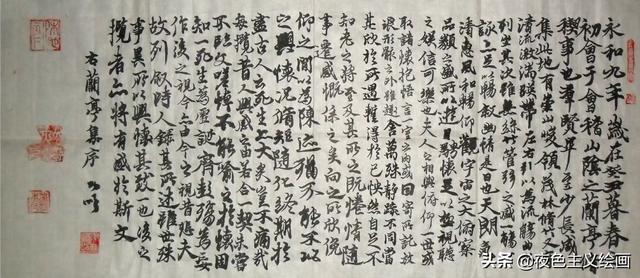 永和九年歲在癸丑暮春
初會于會稽山陰之蘭亭
稧事也群賢畢至少長咸
集此地有崇山峻領茂林脩竹又
清流激湍暎帶左右引以為流觴曲
列坐其次雖無絲竹管弦之盛一觴
詠亦足以暢敘幽情是日也天朗氣
清惠風和暢仰觀宇宙之大俯察
品類之盛所以遊目騁懷足以極視聽
之娛信可樂也夫人之相與俯仰一世或
取諸懷抱悟言一室之內或因寄所託放
浪形骸之外雖趣舍萬殊靜躁不同當
其欣於所遇暫得於己快然自足不
知老之將至及其所之既惓情隨
事遷感慨係之矣向之所欣俛
仰之閒以為陳迹猶不能不以
之興懷況脩短隨化終期於
盡古人云死生亦大矣豈不痛哉
每攬昔人興感之由若合一契未嘗
不臨文嗟悼不能喻之於懷固
知一死生為虛誕齊彭殤為妄
作後之視今亦由今之視昔悲夫
故列敘時人錄其所述雖世殊
事異所以興懷其致一也後之
攬者亦將有感於斯文
右蘭亭集序
头条 @夜色主义绘画